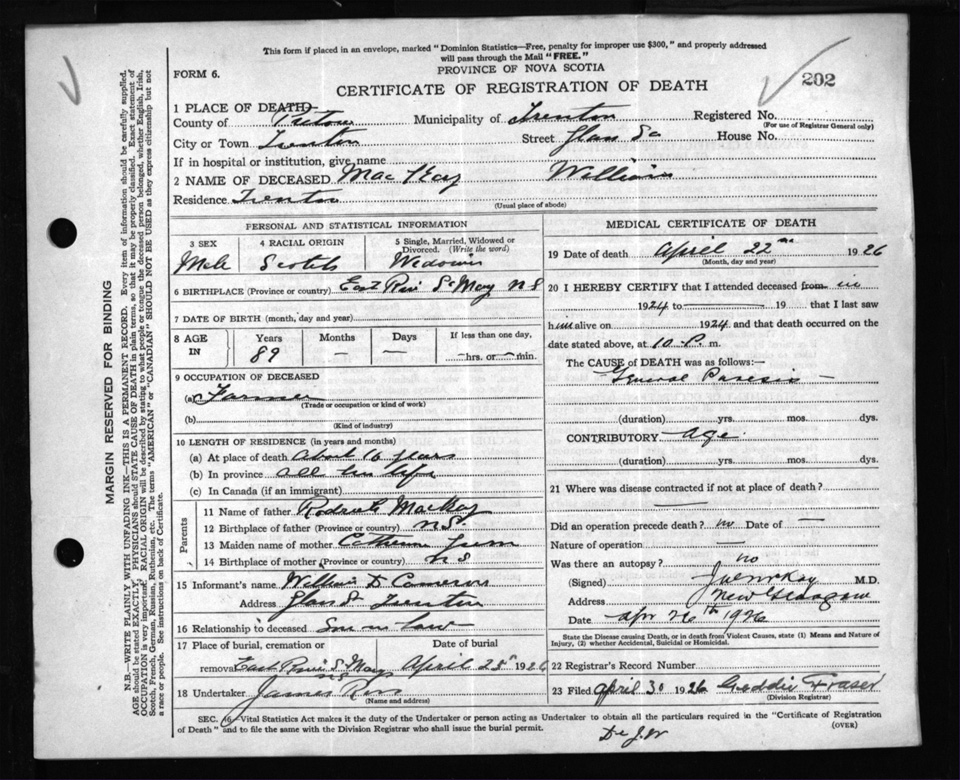 This form if placed in an envelope, marked "Dominion Statistics—Free, penalty for improper use $300," and properly addressed
will pass through the Mail "FREE."
PROVINCE OF NOVA SCOTIA
FORM 6.
202
CERTIFICATE OF REGISTRATION OF DEATH
1 PLACE OF DEATH
County of Pictou Municipality of Trenton Registered No.
(For use of Registrar General only)
City or Town Trenton Street House No.
If in hospital or institution, give name
2 NAME OF DECEASED MacKay William
Residence Trenton
(Usual place of abode)
PERSONAL AND STATISTICAL INFORMATION
3 SEX 4 RACIAL ORIGIN 5 Single, Married, Widowed or Divorced. (Write the word)
Male Scotch
6 BIRTHPLACE (Province or country) East St Mary NS
7 DATE OF BIRTH (month, day and year)
8 AGE IN Years Months Days If less than one day,
89 — — —hrs. or —min.
9 OCCUPATION OF DECEASED
(a) Farmer
(Trade or occupation or kind of work)
(b)
(Kind of industry)
10 LENGTH OF RESIDENCE (in years and months)
(a) At place of death About 16 years
(b) In province all his life
(c) In Canada (if an immigrant)
Parents
11 Name of father MacKay
12 Birthplace of father (Province or country) N.S.
13 Maiden name of mother Catherine
14 Birthplace of mother (Province or country) N S
15 Informant's name William D Cameron
Address Trenton
16 Relationship to deceased Son in law
17 Place of burial, cremation or removal Date of burial
East St Mary NS April 25th 1926
18 Undertaker James
(Name and address)
MEDICAL CERTIFICATE OF DEATH
19 Date of death April 22 1926
(Month, day and year)
20 I HEREBY CERTIFY that I attended deceased from in
1924 to 19 that I last saw
him alive on 1924 and that death occurred on
date stated above, at 10 P. m.
The CAUSE of DEATH was as follows:—
General Paresis
(duration) yrs. mos. dys.
CONTRIBUTORY Age
(duration) yrs. mos. dys.
21 Where was disease contracted if not at place of death?
—
Did an operation precede death? no Date of —
Nature of operation —
Was there an autopsy? no
(Signed) M.D.
Address New Glasgow
Date Apr 26th 1926
State the Disease causing Death, or in death from Violent Causes, state (1) Means and Nature of
Injury, (2) whether Accidental, Suicidal or Homicidal.
22 Registrar's Record Number
23 Filed April 30 1926 Geddie Fraser
(Division Registrar)
SEC. 16—Vital Statistics Act makes it the duty of the Undertaker or person acting as Undertaker to obtain all the particulars required in the "Certificate of Registration
of Death" and to file the same with the Division Registrar who shall issue the burial permit. (OVER)
MARGIN RESERVED FOR BINDING
N.B.—WRITE PLAINLY WITH UNFADING INK—THIS IS A PERMANENT RECORD. Every item of information should be carefully supplied.
AGE should be stated EXACTLY. PHYSICIANS should STATE CAUSE OF DEATH in plain terms, so that it may be properly classified. Exact statement of
OCCUPATION is very important. RACIAL ORIGIN will be described by stating to what people or tongue the deceased person belonged, whether English, Irish,
Scotch, French, German, Russian, Ruthenian, etc. The terms "AMERICAN" or "CANADIAN" SHOULD NOT BE USED as they express citizenship but not
a race or people. See instructions on back of Certificate.